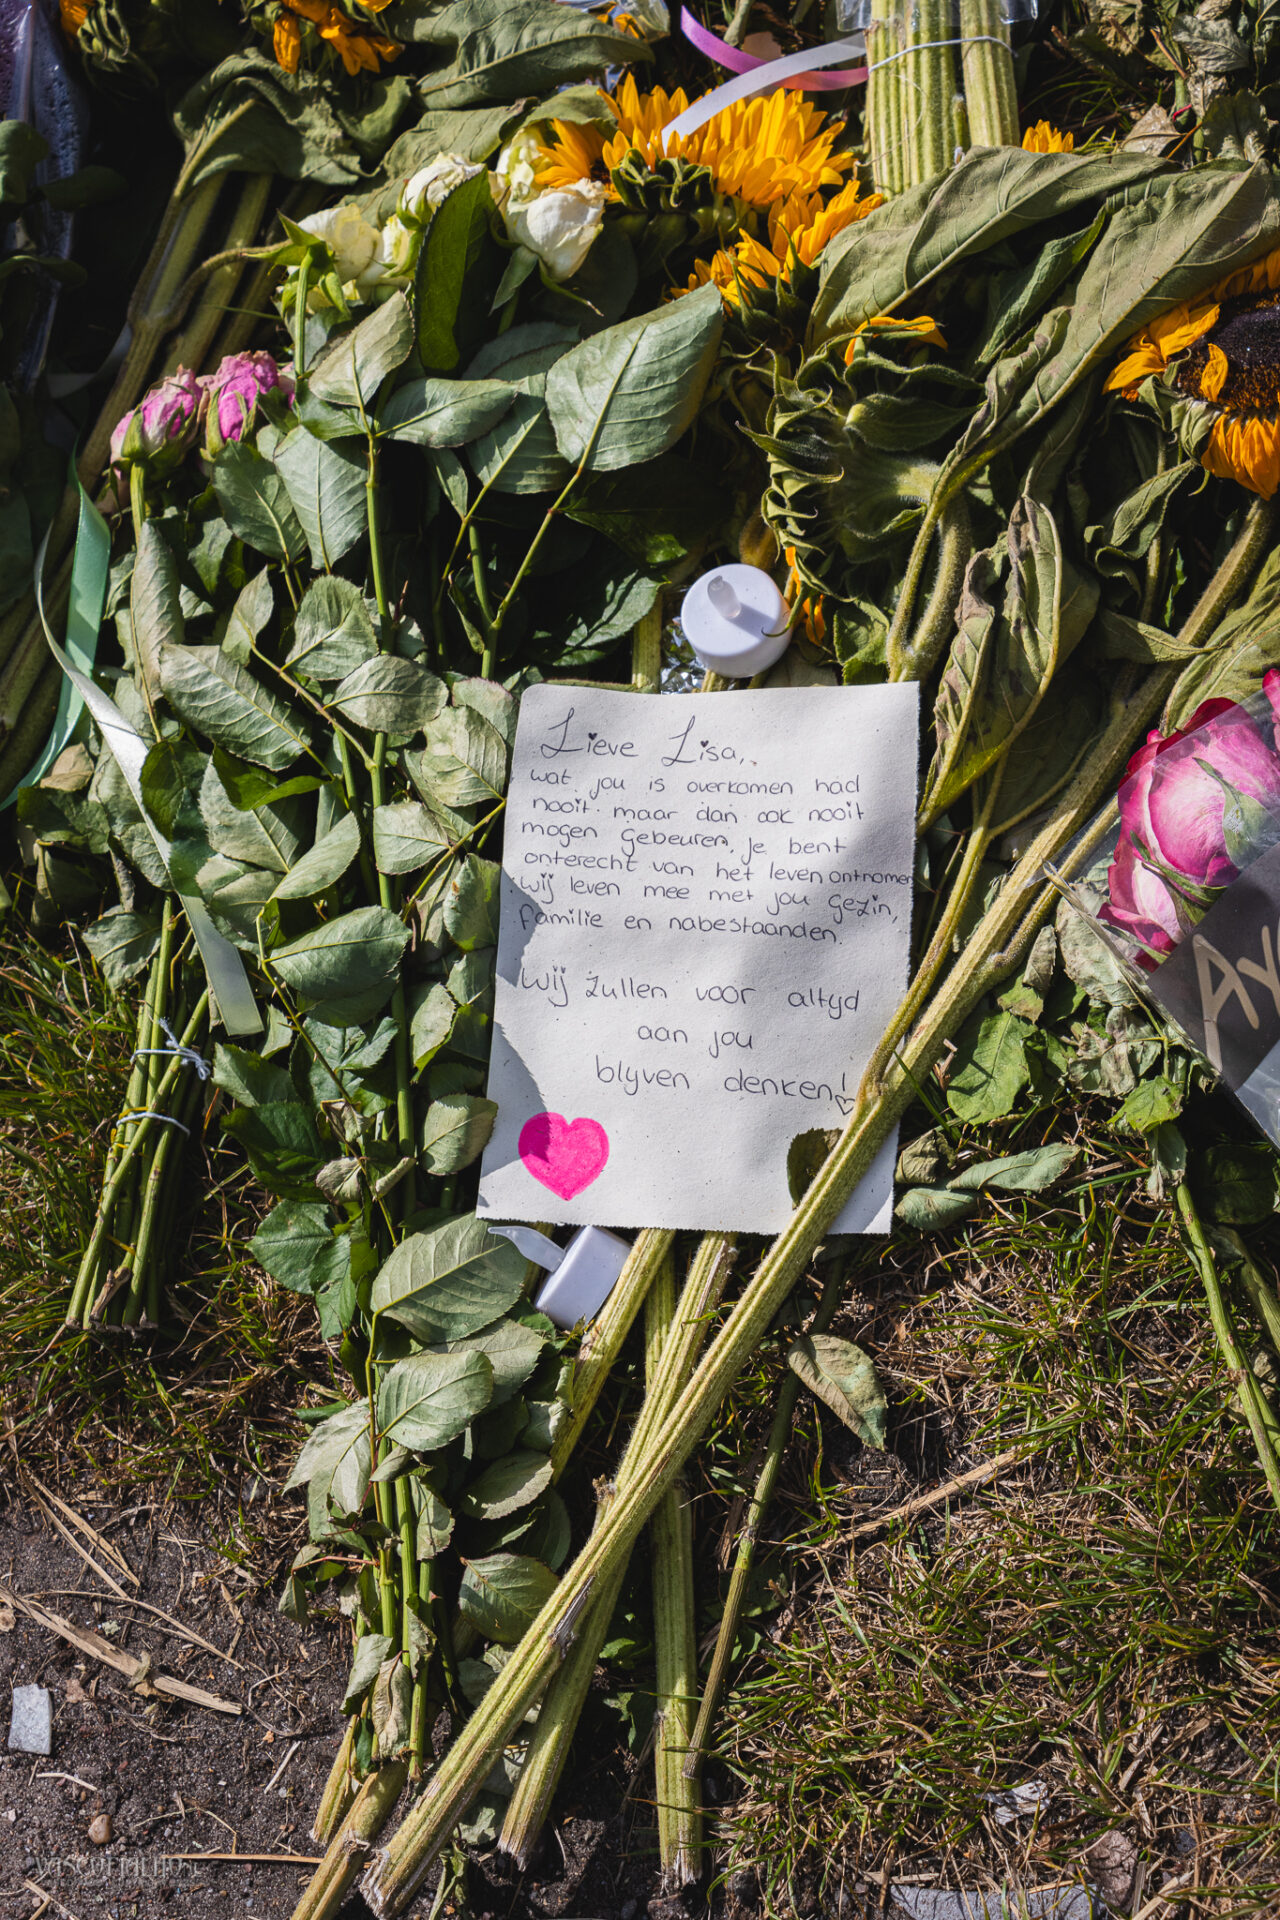 Lieve Lisa,
wat jou is overkomen had
nooit maar dan ook nooit
mogen gebeuren, je bent
onterecht van het leven ontnomen
wij leven mee met jou gezin,
familie en nabestaanden.
Wij zullen voor altyd
aan jou
blyven denken!
AY